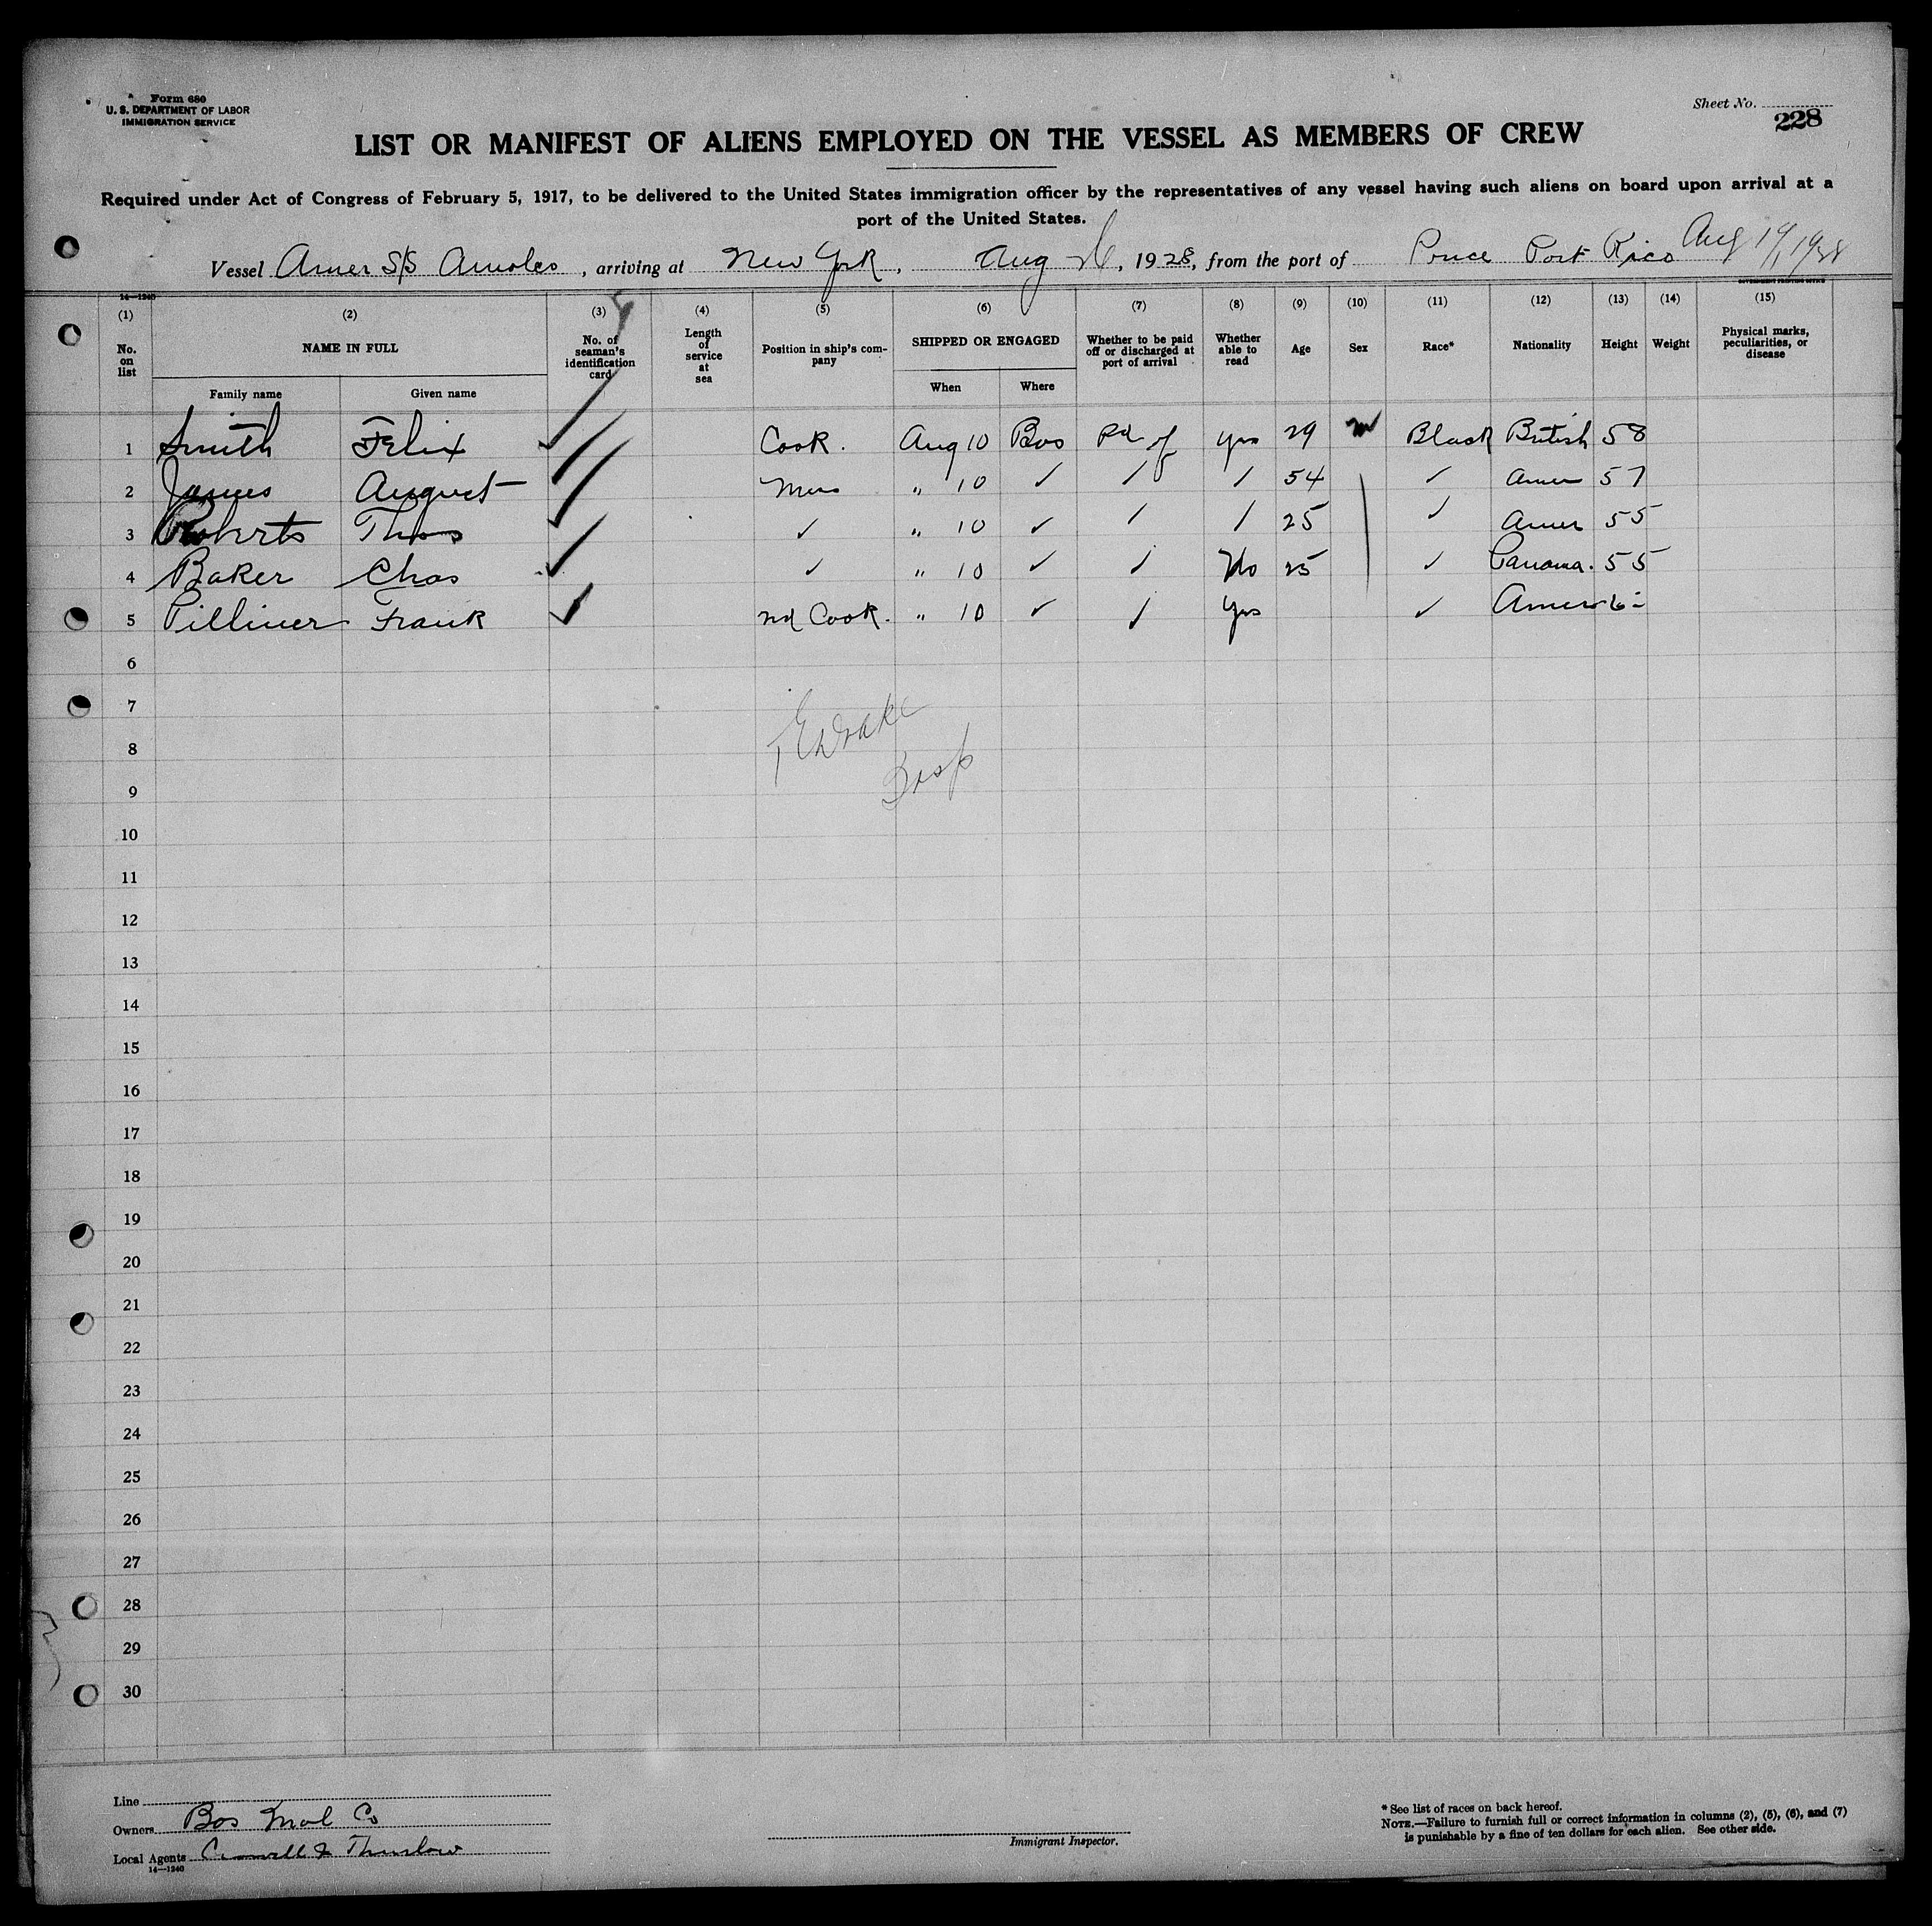 Form 680
U. S. DEPARTMENT OF LABOR
IMMIGRATION SERVICE
Sheet No.
228
LIST OR MANIFEST OF ALIENS EMPLOYED ON THE VESSEL AS MEMBERS OF CREW
Required under Act of Congress of February 5, 1917, to be delivered to the United States immigration officer by the representatives of any vessel having such aliens on board upon arrival at a
port of the United States.
Vessel Amer S/S Amolco, arriving at New York, Aug 26, 1928, from the port of Ponce Port Rico Aug 19, 1928
14—1240 GOVERNMENT PRINTING OFFICE
(1) (2) (3) (4) (5) (6) (7) (8) (9) (10) (11) (12) (13) (14) (15)
No. on list NAME IN FULL No. of seaman's identification card Length of service at sea Position in ship's company SHIPPED OR ENGAGED Whether to be paid off or discharged at port of arrival Whether able to read Age Sex Race* Nationality Height Weight Physical marks, peculiarities, or disease
Family name Given name When Where
1 Smith Felix ✓ Cook. Aug 10 Bos Pd of yes 29 m Black British 5 8
2 James August ✓ Mess " 10 ✓ ✓ ✓ 54 ✓ Amer 5 7
3 Roberts Thos ✓ ✓ " 10 ✓ ✓ ✓ 25 ✓ Amer 5 5
4 Baker Chas ✓ ✓ " 10 ✓ ✓ No 25 ✓ Panama. 5 5
5 Pilliner Frank ✓ 2nd Cook. " 10 ✓ ✓ yes ✓ Amer 6 -
6
7
EDrake
8
Insp
9
10
11
12
13
14
15
16
17
18
19
20
21
22
23
24
25
26
27
28
29
30
Line
Owners Bos Mol Co
Local Agents Crowell & Thurlow
14—1240
Immigrant Inspector.
* See list of races on back hereof.
NOTE.—Failure to furnish full or correct information in columns (2), (5), (6), and (7)
is punishable by a fine of ten dollars for each alien. See other side.